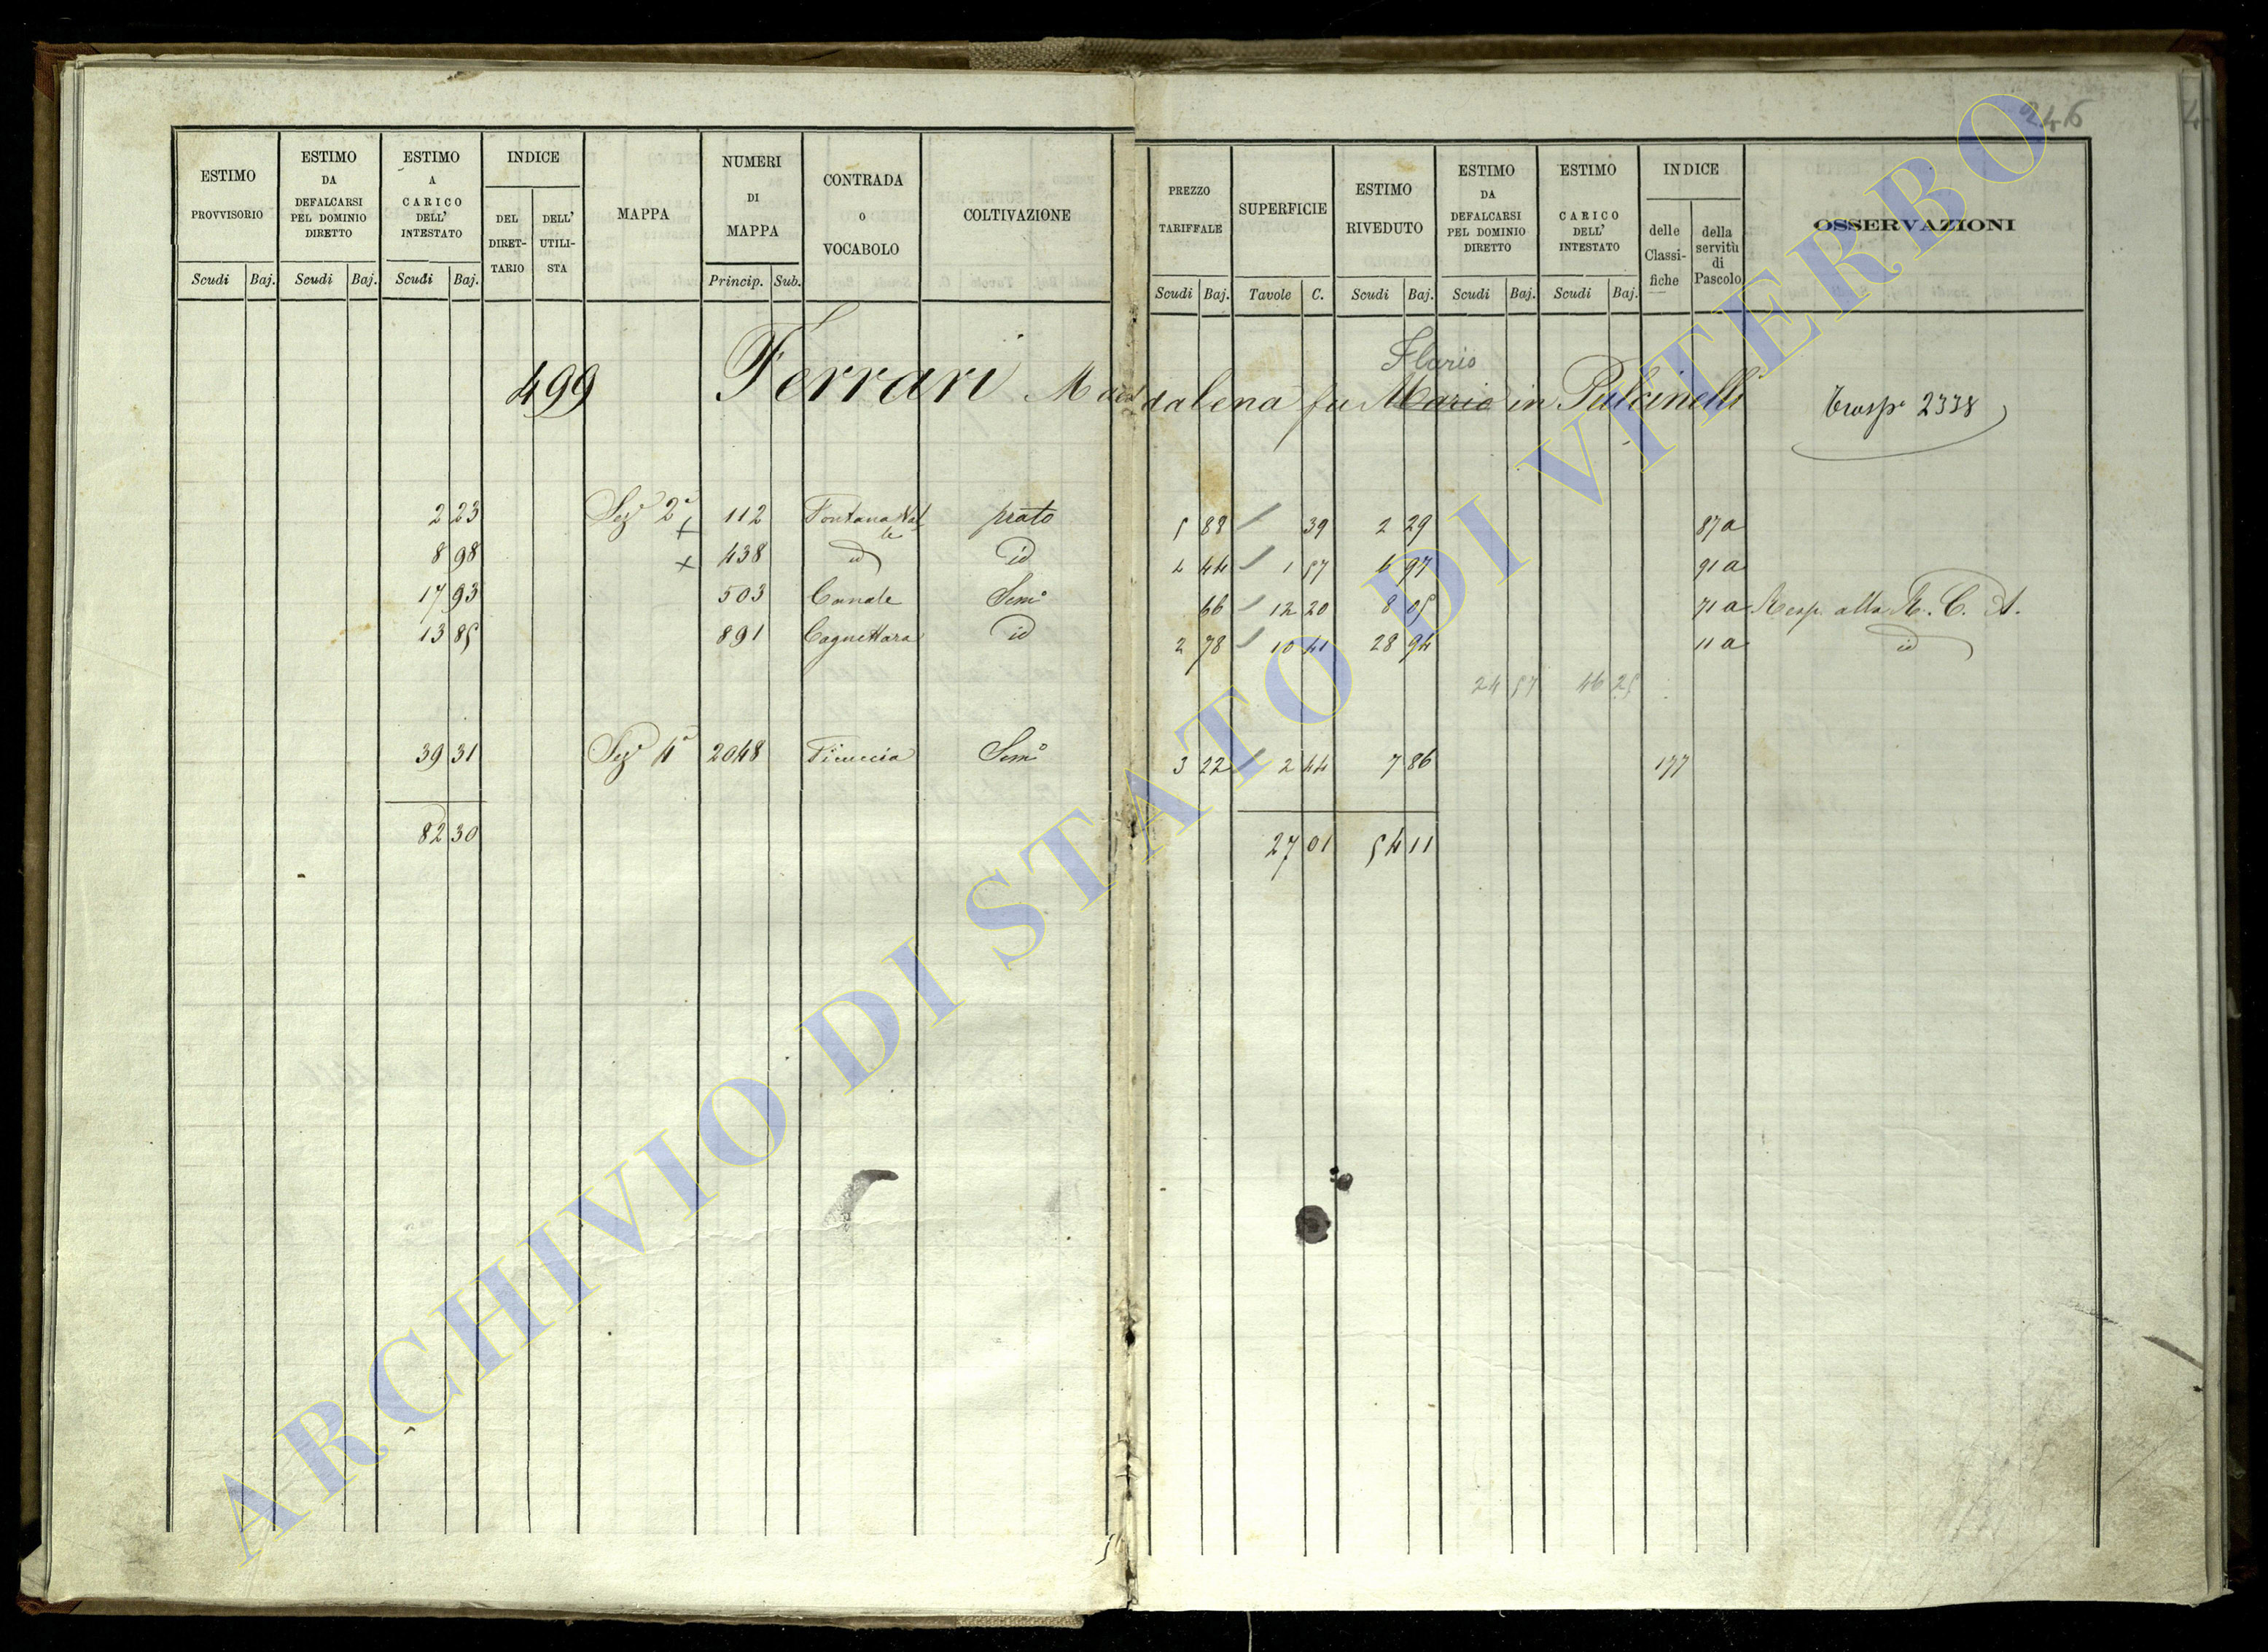 246
ESTIMO PROVVISORIO
ESTIMO DA DEFALCARSI PEL DOMINIO DIRETTO
ESTIMO A CARICO DELL' INTESTATO
INDICE
DEL DIRET-TARIO
DELL' UTILI-STA
MAPPA
NUMERI DI MAPPA
CONTRADA O VOCABOLO
COLTIVAZIONE
PREZZO TARIFFALE
SUPERFICIE
ESTIMO RIVEDUTO
ESTIMO DA DEFALCARSI PEL DOMINIO DIRETTO
ESTIMO CARICO DELL' INTESTATO
INDICE
delle Classi-fiche
della servitù di Pascolo
OSSERVAZIONI
Scudi Baj. Scudi Baj. Scudi Baj. Princip. Sub. Scudi Baj. Tavole C. Scudi Baj. Scudi Baj. Scudi Baj.
Ilario
499 Ferrari Maddalena fu Mario in Pulcinelli Trasp. 2338
2 23 Sez. 2a + 112 Fontana prato 5 88 39 2 29 87 a
8 98 x 438 id id 4 44 1 57 6 97 91 a
17 93 503 Canale Semo 66 12 20 8 05 71 a Resp. alla R. C. A.
13 85 891 Cagnettara id 2 78 10 41 28 94 11 a id
24 57 46 25
39 31 Sez. 4a 2048 Ficuccia Semo 3 22 2 44 7 86 177
82 30 27 01 54 11
ARCHIVIO DI STATO DI VITERBO